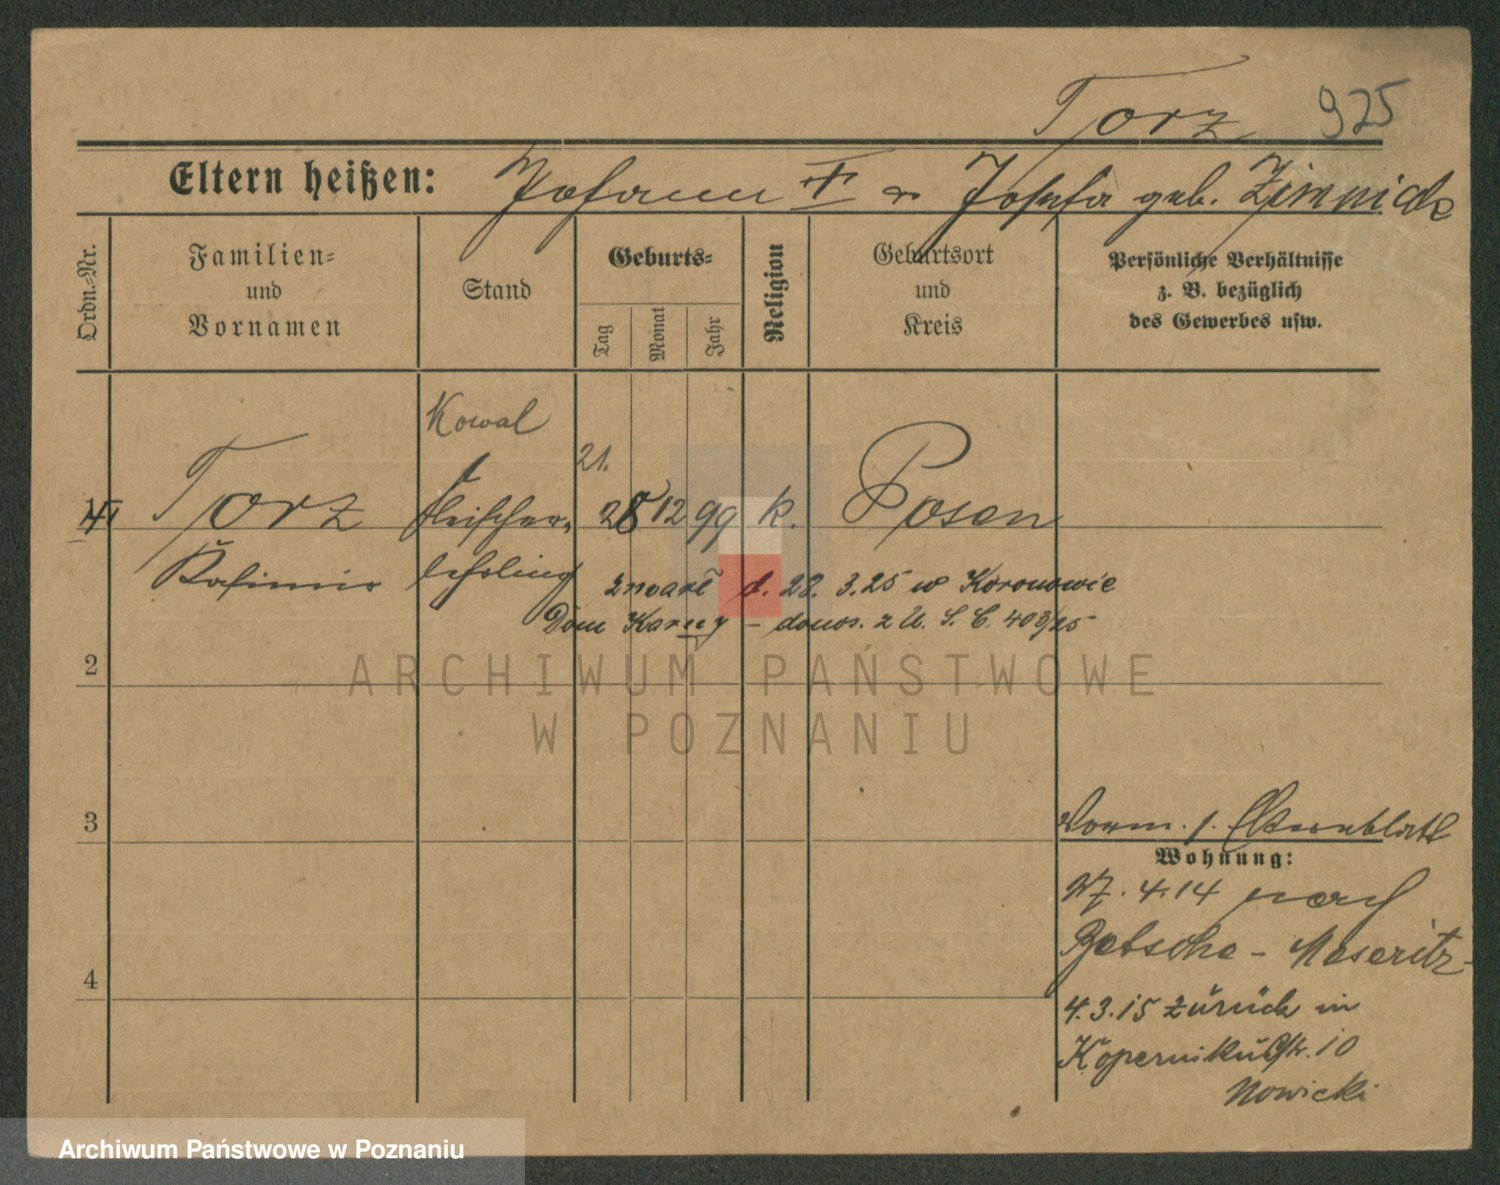 Torz 925
Eltern heißen: Johann † u Josefa geb. Zimniak
Ordn.-Nr.
Familien-
und
Vornamen
Stand
Geburts-
Tag
Monat
Jahr
Religion
Geburtsort
und
Kreis
Persönliche Verhältnisse
z. B. bezüglich
des Gewerbes usw.
Kowal
21.
Torz Fleischer- 28 12 99 k. Posen
Kasimir lehrling
zmarł d. 28. 3.25 w Koronowie
Dom Karny - donos. z U. S. C. 403/25
2
ARCHIWUM PAŃSTWOWE
W POZNANIU
3
4
Vorm. 1. Elternblatt
Wohnung:
27. 4. 14 nach
Betsche - Meseritz
4. 3. 15 zurück in
Kopernikusstr. 10
Nowicki
Archiwum Państwowe w Poznaniu